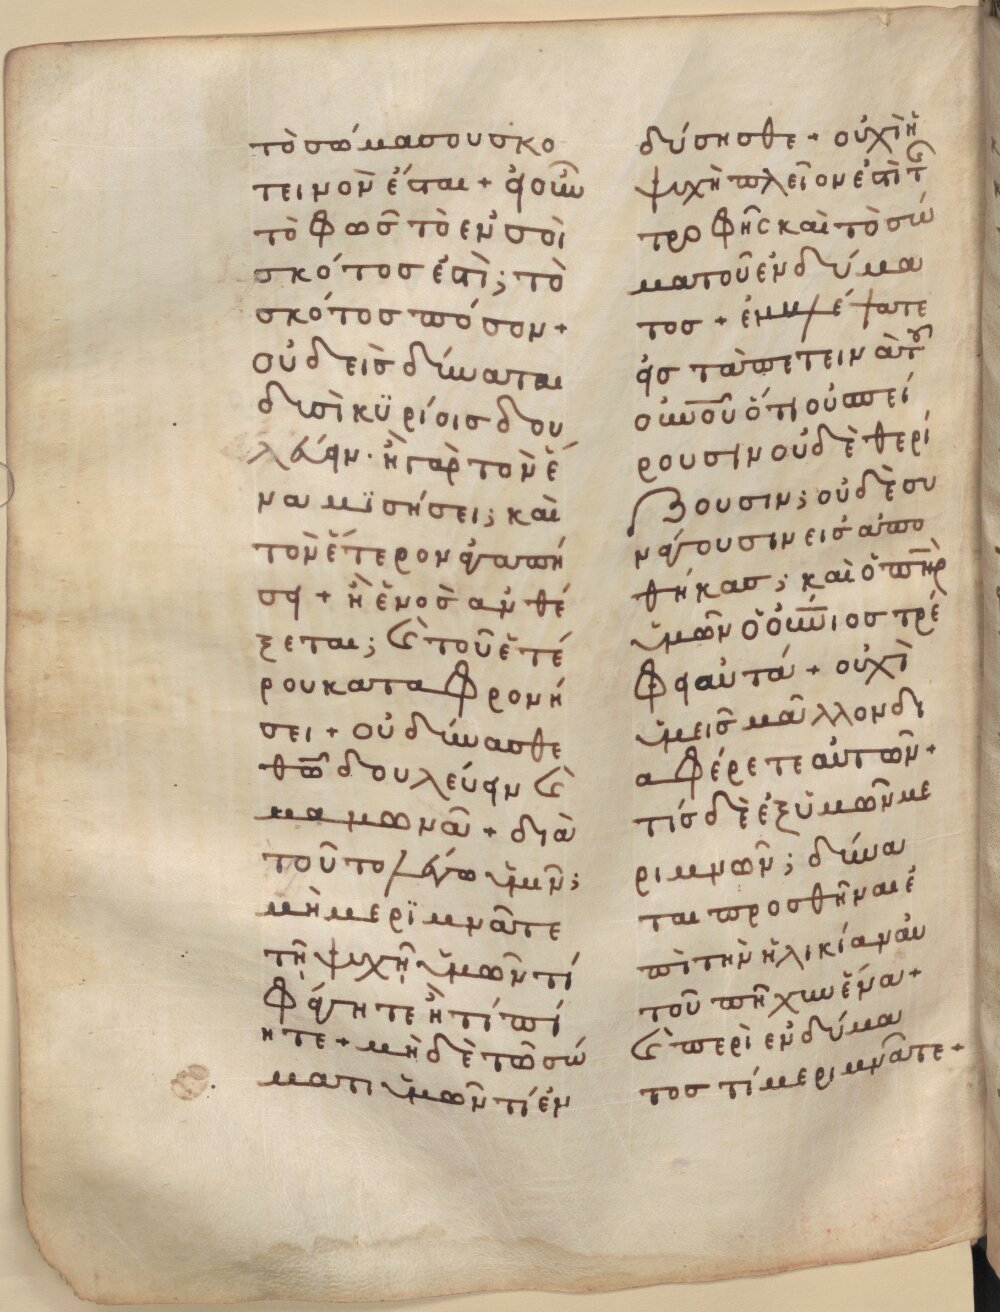 τὸ σώμα σου σκο
τεινὸν ἔσται + εἰ οὖν
τὸ φωσ τὸ ἐν σοὶ
σκότοσ ἐστὶ; τὸ
σκότοσ πόσον +
οὐδεὶσ δύναται
δυσὶ κϋρίοισ δου
λεύειν · ἢ γὰρ τὸν ἕ
να μϊσήσει; καὶ
τὸν ἕτερον ἀγαπή
σει + ἢ ἑνοσ ἀνθέ
ξεται; καὶ τοῦ ἑτέ
ρου καταφρονή
σει + οὐ δύνασθε
θω δουλεύειν καὶ
μαμωνᾶ + διὰ
τοῦτο λέγω ὑμῖν;
μὴ μερϊμνᾶτε
τῆ ψυχῆ ὑμῶν τί
φάγητε ἢ τί πί
ητε + μηδὲ τῶ σώ
ματι ὑμῶν τί ἐν
δύσησθε + οὐχὶ ἡ
ψυχὴ πλεῖον ἐστὶ τ
τροφῆς καὶ τὸ σώ
μα τοῦ ἐνδύμα
τοσ + ἐμβλέψατε
εἰσ τὰ πετεινὰ τοῦ
οὐνοῦ ὅτι οὐ σπεί
ρουσιν οὐδὲ θερί
ζουσιν; οὐδὲ συ
νάγουσιν εισ ἀπο
θήκασ; καὶ ὁ πηρ
ὑμῶν ὁ οὐνιοσ τρέ
φει αὐτά + οὐχὶ
ὑμεῖσ μᾶλλον δι
αφέρετε αὐτῶν +
τίσ δὲ ἐξ ὑμῶν με
ριμνῶν; δύνα
ται προσθῆναι ἐ
πὶ τὴν ἡλικίαν αὐ
τοῦ πῆχυν ἕνα +
καὶ περὶ ἐνδύμα
τοσ τί μεριμνᾶτε +